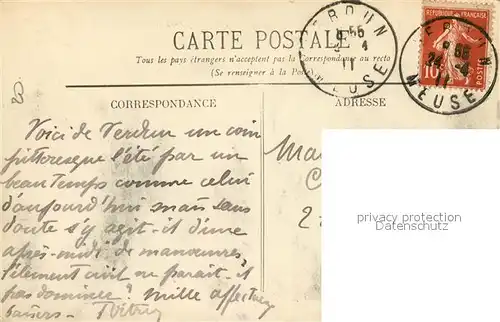 CARTE POSTALE
Tous les pays étrangers n'acceptent pas la Correspondance au recto
(Se renseigner à la Poste)
VERDUN
MEUSE
RÉPUBLIQUE FRANÇAISE
10
VERDUN
MEUSE
CORRESPONDANCE
ADRESSE
Voici de Verdun un coin
pittoresque l'été par un
beau temps comme celui
d'aujourd'hui mais sans
doute s'y agit-il d'une
après-midi de manœuvres,
l'élément civil ne parait-il
pas dominer? Mille affectueux
baisers -
privacy protection
(watermark)